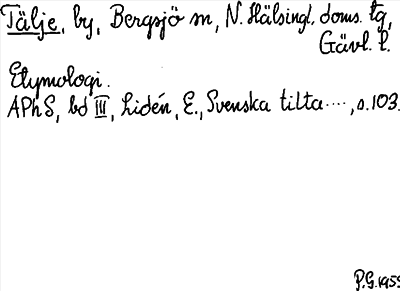 Tälje, by, Bergsjö sn, N. Hälsingl. doms. tg,
Gävl. l.
Etymologi.
APhS, bd III, Lidén, E., Svenska tilta...., s. 103.
P.G. 1959